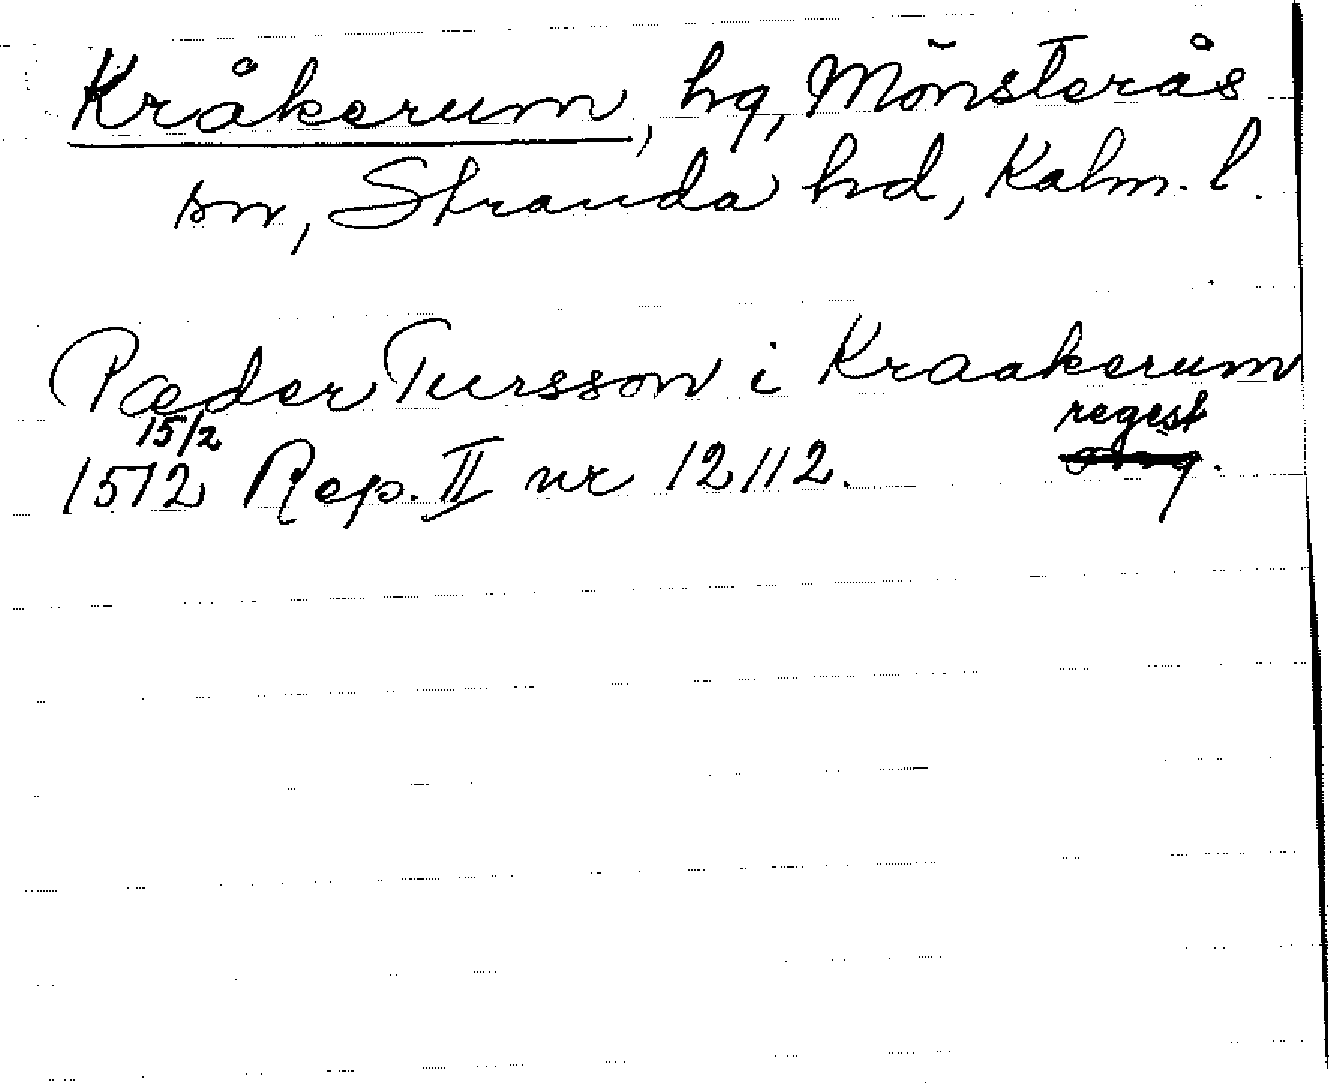 Kråkerum, hg, Mönsterås
sn, Stranda hd, Kalm. l.
Pæder Tursson i Kraakerum
15/2 regest
1512 Rep. II nr 12112. orig.